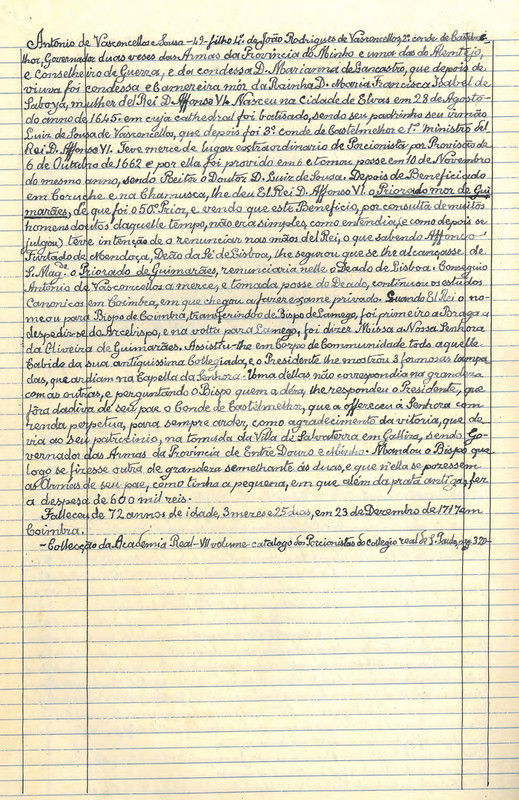 Antonio de Vasconcellos e Sousa - 49 - filho 4º de João Rodrigues de Vasconcellos, 2º conde de Castelme-
lhor, Governador duas veses das Armas da Provincia do Minho e uma das do Alemtejo,
e Conselheiro de Guerra, e da condessa D. Marianna de Lancastro, que depois de
viuva foi condessa e Camereira mór da Rainha D. Maria Francisca Isabel de
Saboya, mulher del Rei D. Affonso VI. Nasceu na cidade de Elvas em 28 de Agosto
do anno de 1645, em cuja cathedral foi batisado, sendo seu padrinho seu irmão
Luiz de Sousa de Vasconcellos, que depois foi 3º conde de Castelmelhor e 1º ministro del
Rei D. Affonso VI. Teve merce de lugar extraordinario de Porcionista por Provisão de
6 de Outubro de 1662 e por ella foi provido em e tomou posse em 10 de Novembro
do mesmo anno, sendo Reitor o Doutor D. Luiz de Sousa. Depois de Beneficiado
em Coruche e na Chamusca, lhe deu El Rei D. Affonso VI o Priorado mór de Gui-
marães, de que foi o 50º Prior, e vendo que este Beneficio, por consulta de muitos
homens doutos daquelle tempo, não era simples, como entendia, (e como depois se
julgou) teve intenção de o renunciar nas mãos del Rei, o que sabendo Affonso
Furtado de Mendoça, Deão da Sé de Lisboa, lhe segurou que se lhe alcançasse de
S. Magde. o Priorado de Guimarães, renunciaria nelle o Deado de Lisboa. Conseguio
Antonio de Vasconcellos a merce, e tomada posse do Deado, continuou os estudos
Canonicos em Coimbra, em que chegou a fazer exame privado. Quando El Rei o no-
meou para Bispo de Coimbra, transferindo-o de Bispo de Lamego, foi primeiro a Braga a
despedir-se do Arcebispo, e na volta para Lamego, foi dizer Missa a Nossa Senhora
da Oliveira de Guimarães. Assistiu-lhe em Corpo de Communidade todo aquelle
Cabido da sua antiquissima Collegiada, e o Presidente lhe mostrou 3 formosas lampa-
das, que ardiam na Capella da Senhora. Uma dellas não correspondia na grandeza
com as outras, e perguntando o Bispo quem a déra, lhe respondeu o Presidente, que
fôra dadiva de seu pae o Conde de Castelmelhor, que a offereceu á Senhora com
renda perpetua, para sempre arder, como agradecimento da vitória, que de-
via ao seu patrocinio, na tomada da Villa de Salvaterra em Galliza, sendo Go-
vernador das Armas da Provincia de Entre Douro e Minho. Mandou o Bispo que
logo se fizesse outra de grandeza semelhante ás duas, e que n'ella se pozessem
as Armas de seu pae, como tinha a pequena, em que além da prata antiga, fez
a despesa de 600 mil reis.
Falleceu de 72 annos de idade, 3 mezes e 25 dias, em 23 de Dezembro de 1717 em
Coimbra.
- Collecção da Academia Real - VII volume catalogo dos Porcionistas do collegio real de S. Paulo, pag 320 -